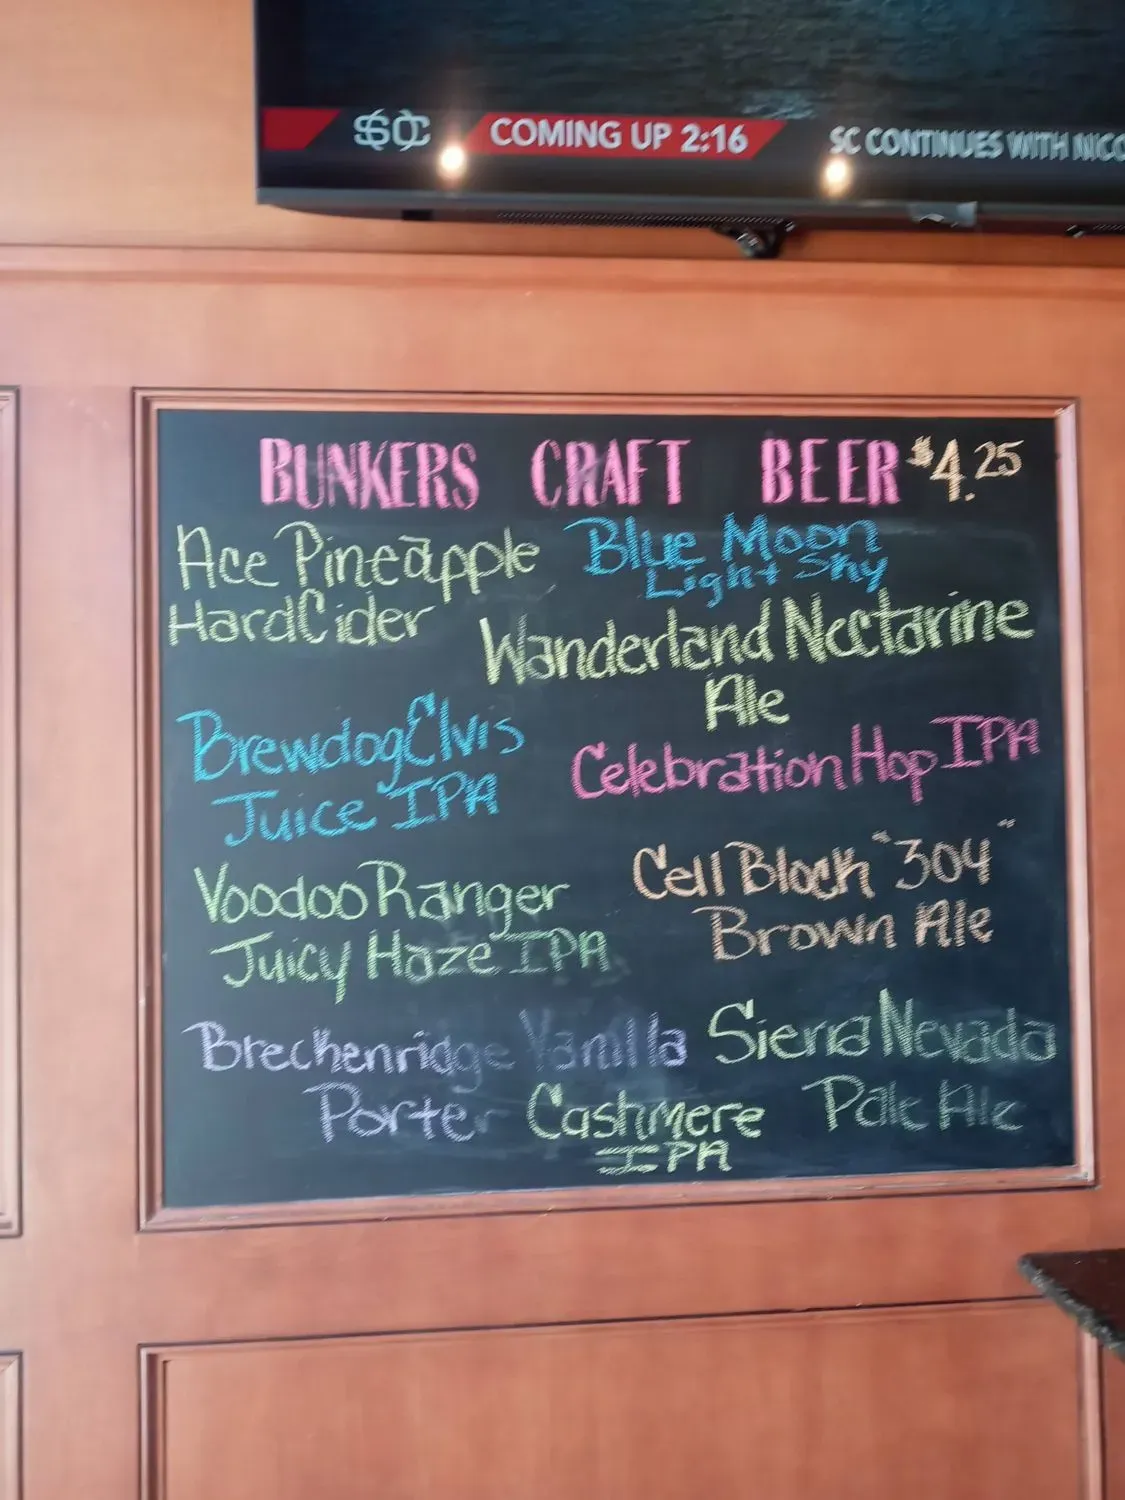 SC
COMING UP 2:16
SC CONTINUES WITH NICO
BUNKERS CRAFT BEER $4.25
Ace Pineapple
Hard Cider
Blue Moon
Light Sky
Wanderland Nectarine
Ale
Brewdog Elvis
Juice IPA
Celebration Hop IPA
Voodoo Ranger
Juicy Haze IPA
Cell Block "304"
Brown Ale
Breckenridge Vanilla
Porter
Sierra Nevada
Pale Ale
Cashmere
IPA